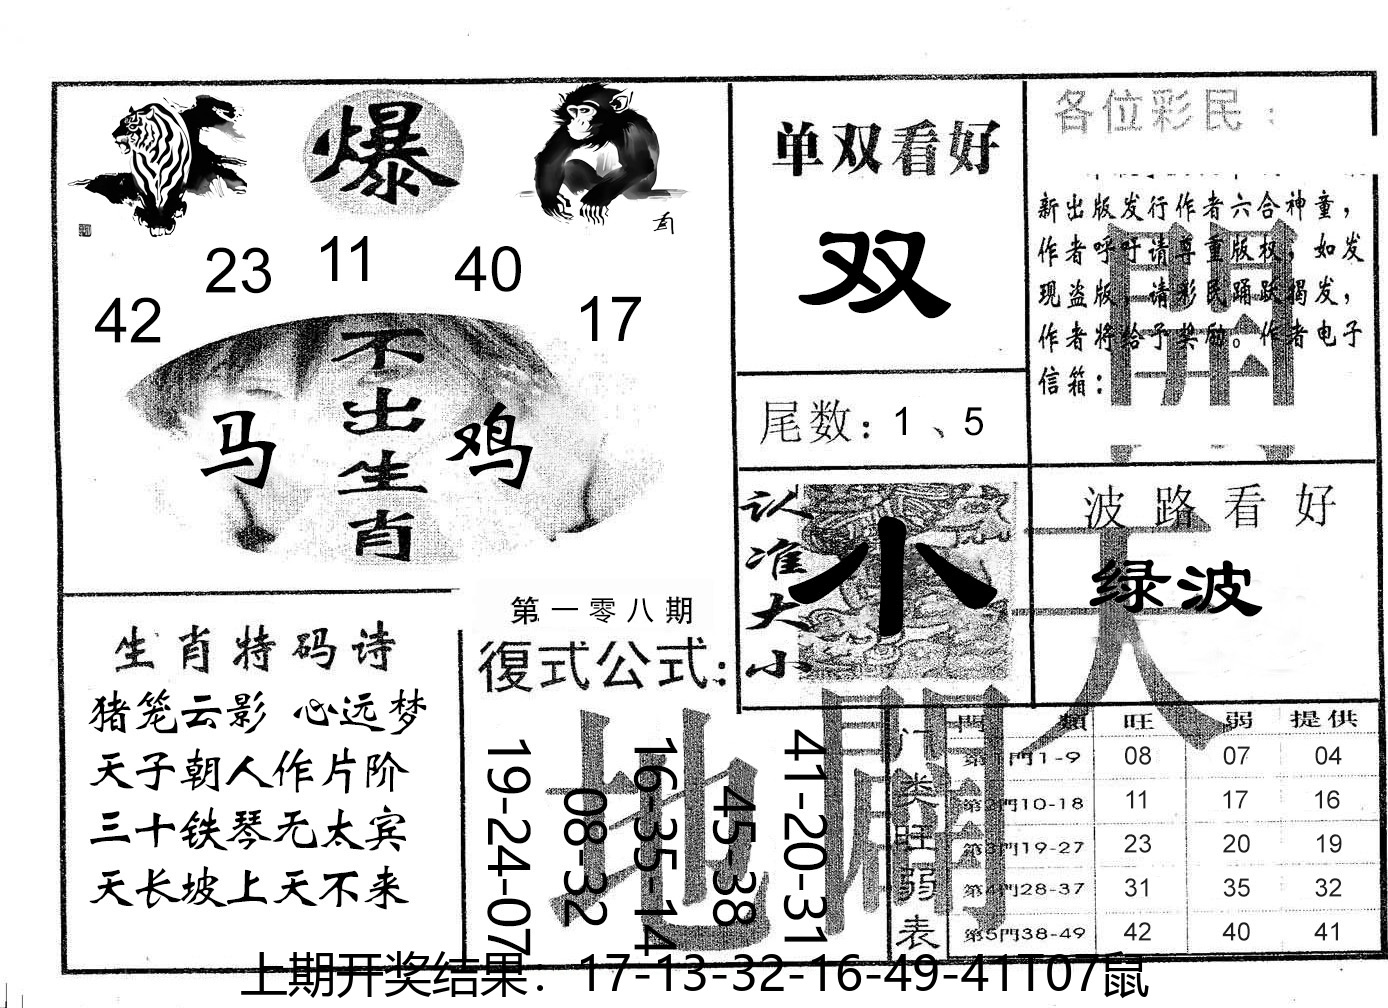 爆
23 11 40
42 17
不出生肖
马 鸡
生肖特码诗
猪笼云影 心远梦
天子朝人作片阶
三十铁琴无太宾
天长坡上天不来
第一零八期
復式公式:
19-24-07
08-32
16-35-14
45-38
41-20-31
单双看好
双
尾数:1、5
认准大小
小
各位彩民:
新出版发行作者六合神童,
作者呼吁请尊重版权,如发
现盗版,请彩民踊跃揭发,
作者将给予奖励。作者电子
信箱:
波路看好
绿波
天
地
開
門類 旺 弱 提供
门类旺弱表
第1門1-9 08 07 04
第2門10-18 11 17 16
第3門19-27 23 20 19
第4門28-37 31 35 32
第5門38-49 42 40 41
上期开奖结果:17-13-32-16-49-41T07鼠